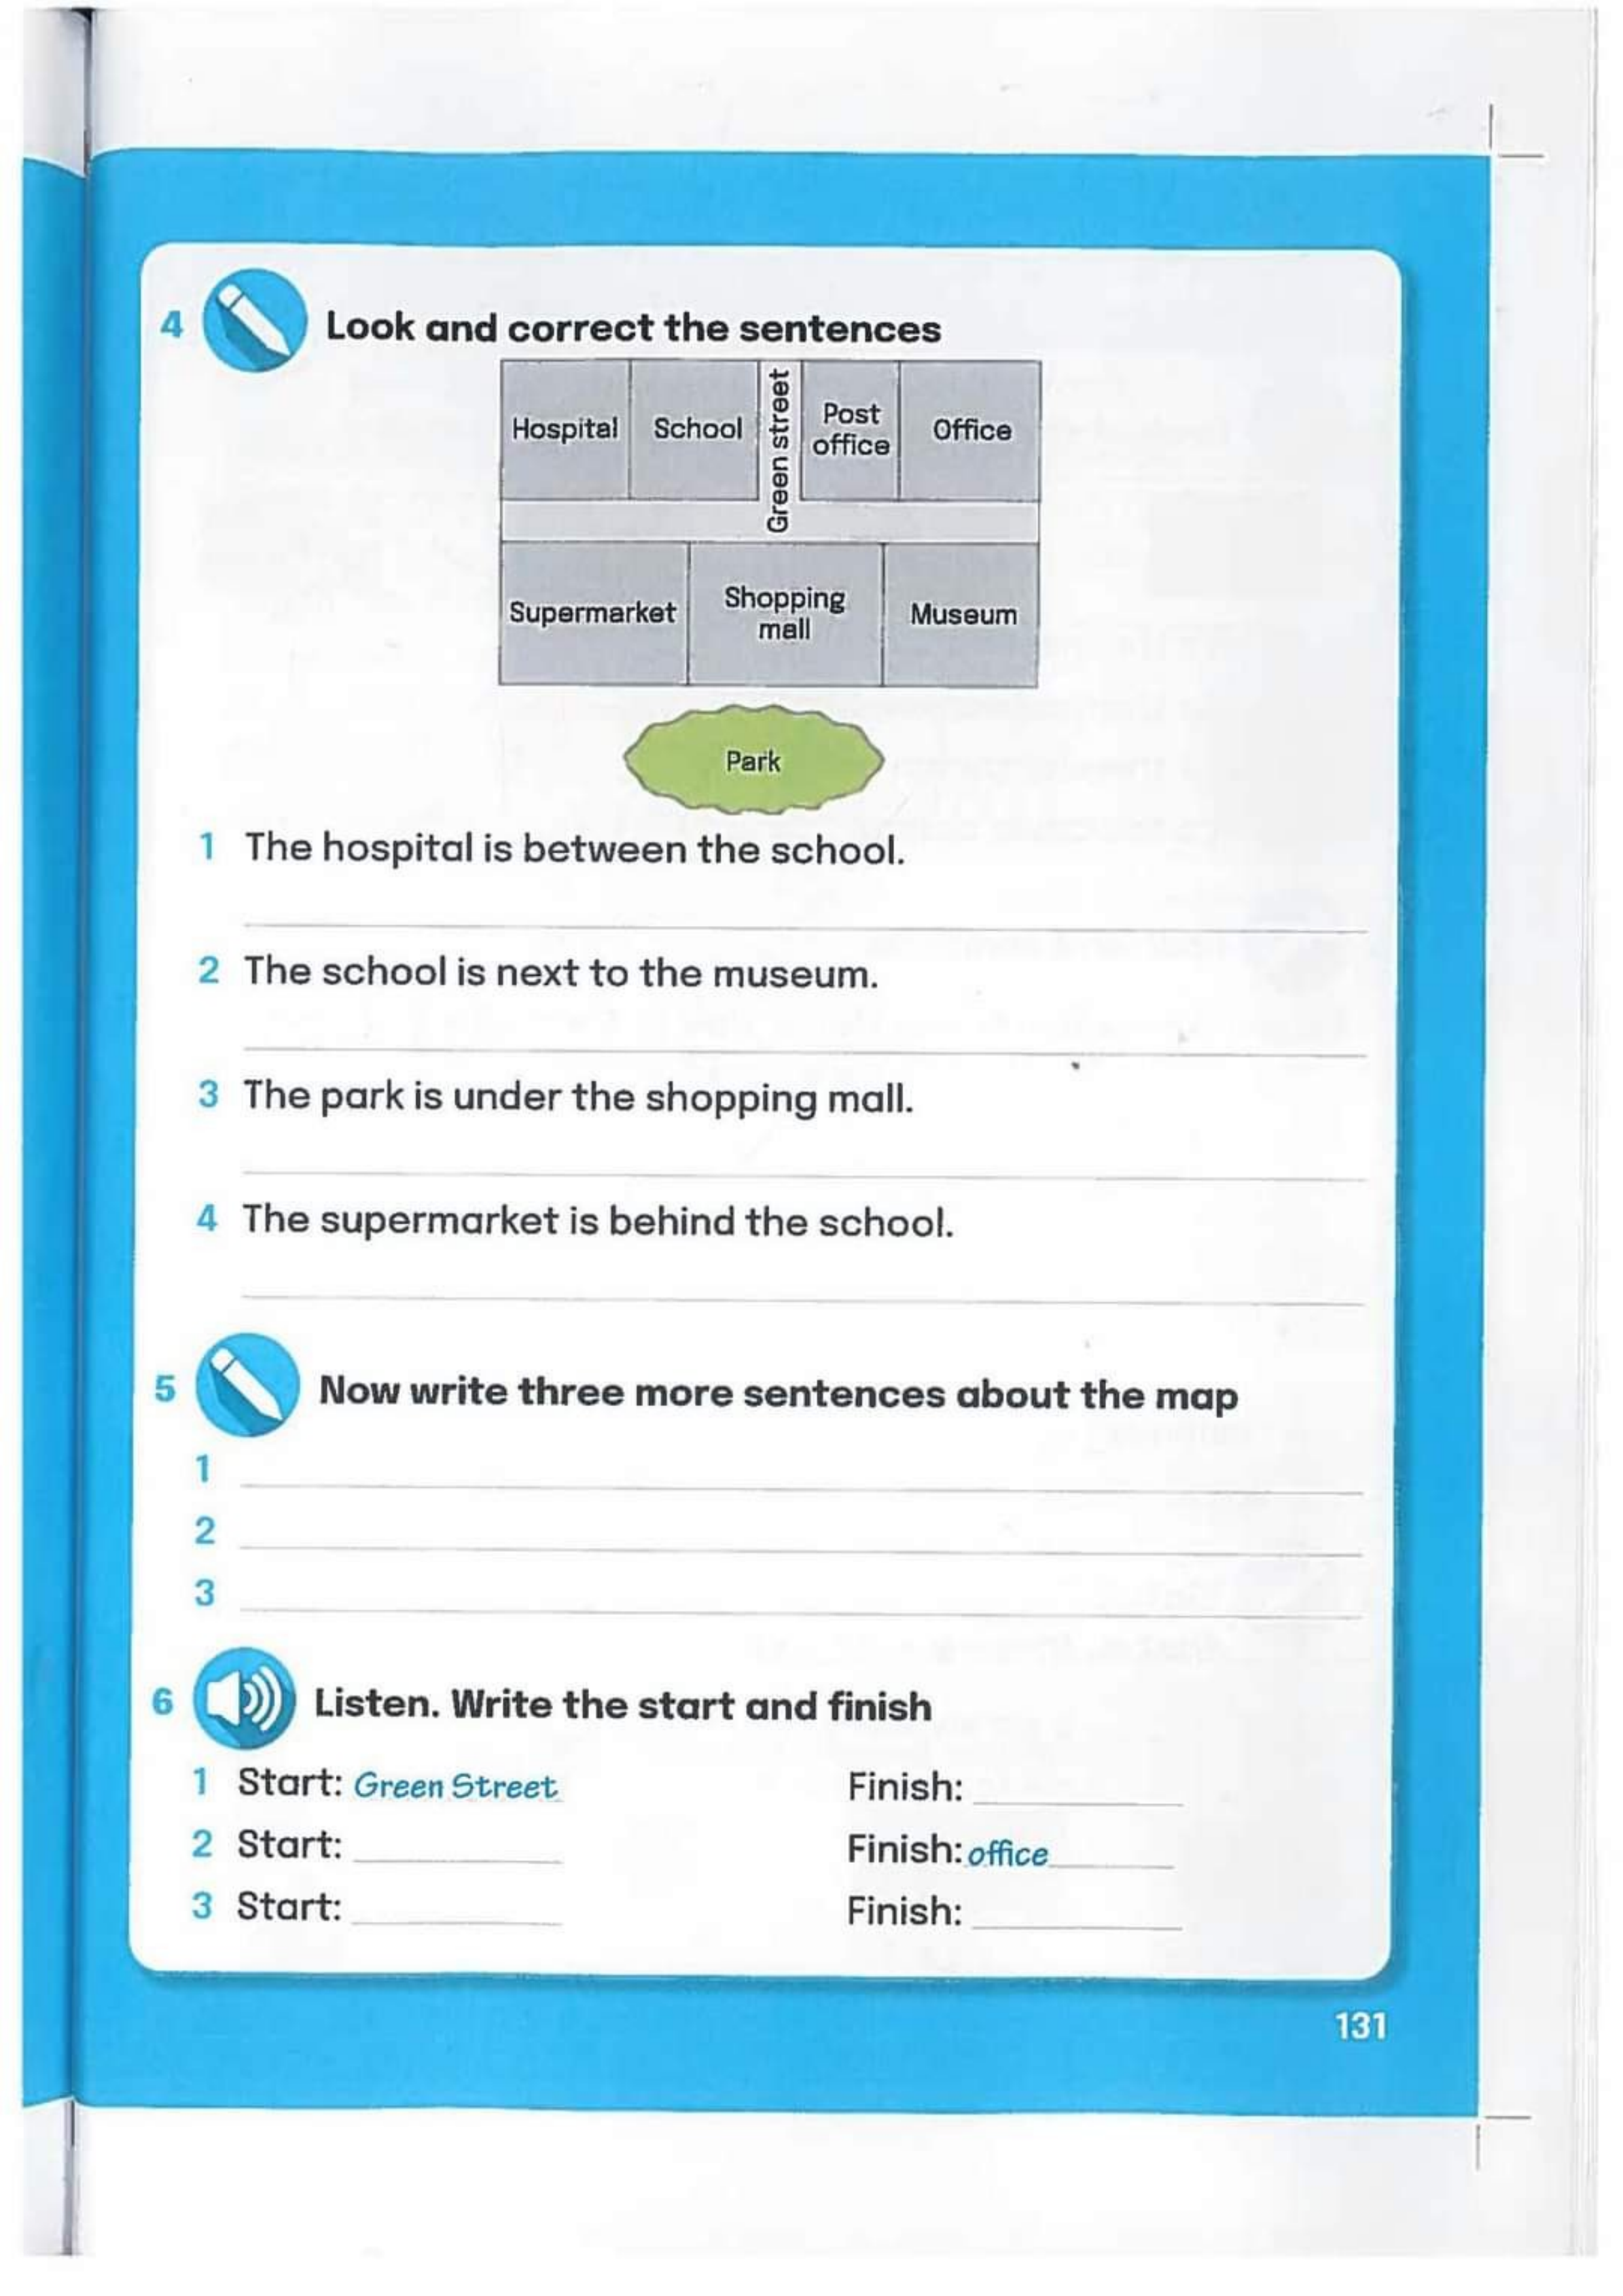 4 Look and correct the sentences
Hospital
School
Green street
Post
office
Office
Supermarket
Shopping
mall
Museum
Park
1 The hospital is between the school.
2 The school is next to the museum.
3 The park is under the shopping mall.
4 The supermarket is behind the school.
5 Now write three more sentences about the map
1
2
3
6 Listen. Write the start and finish
1 Start: Green Street Finish:
2 Start: Finish: office
3 Start: Finish:
131